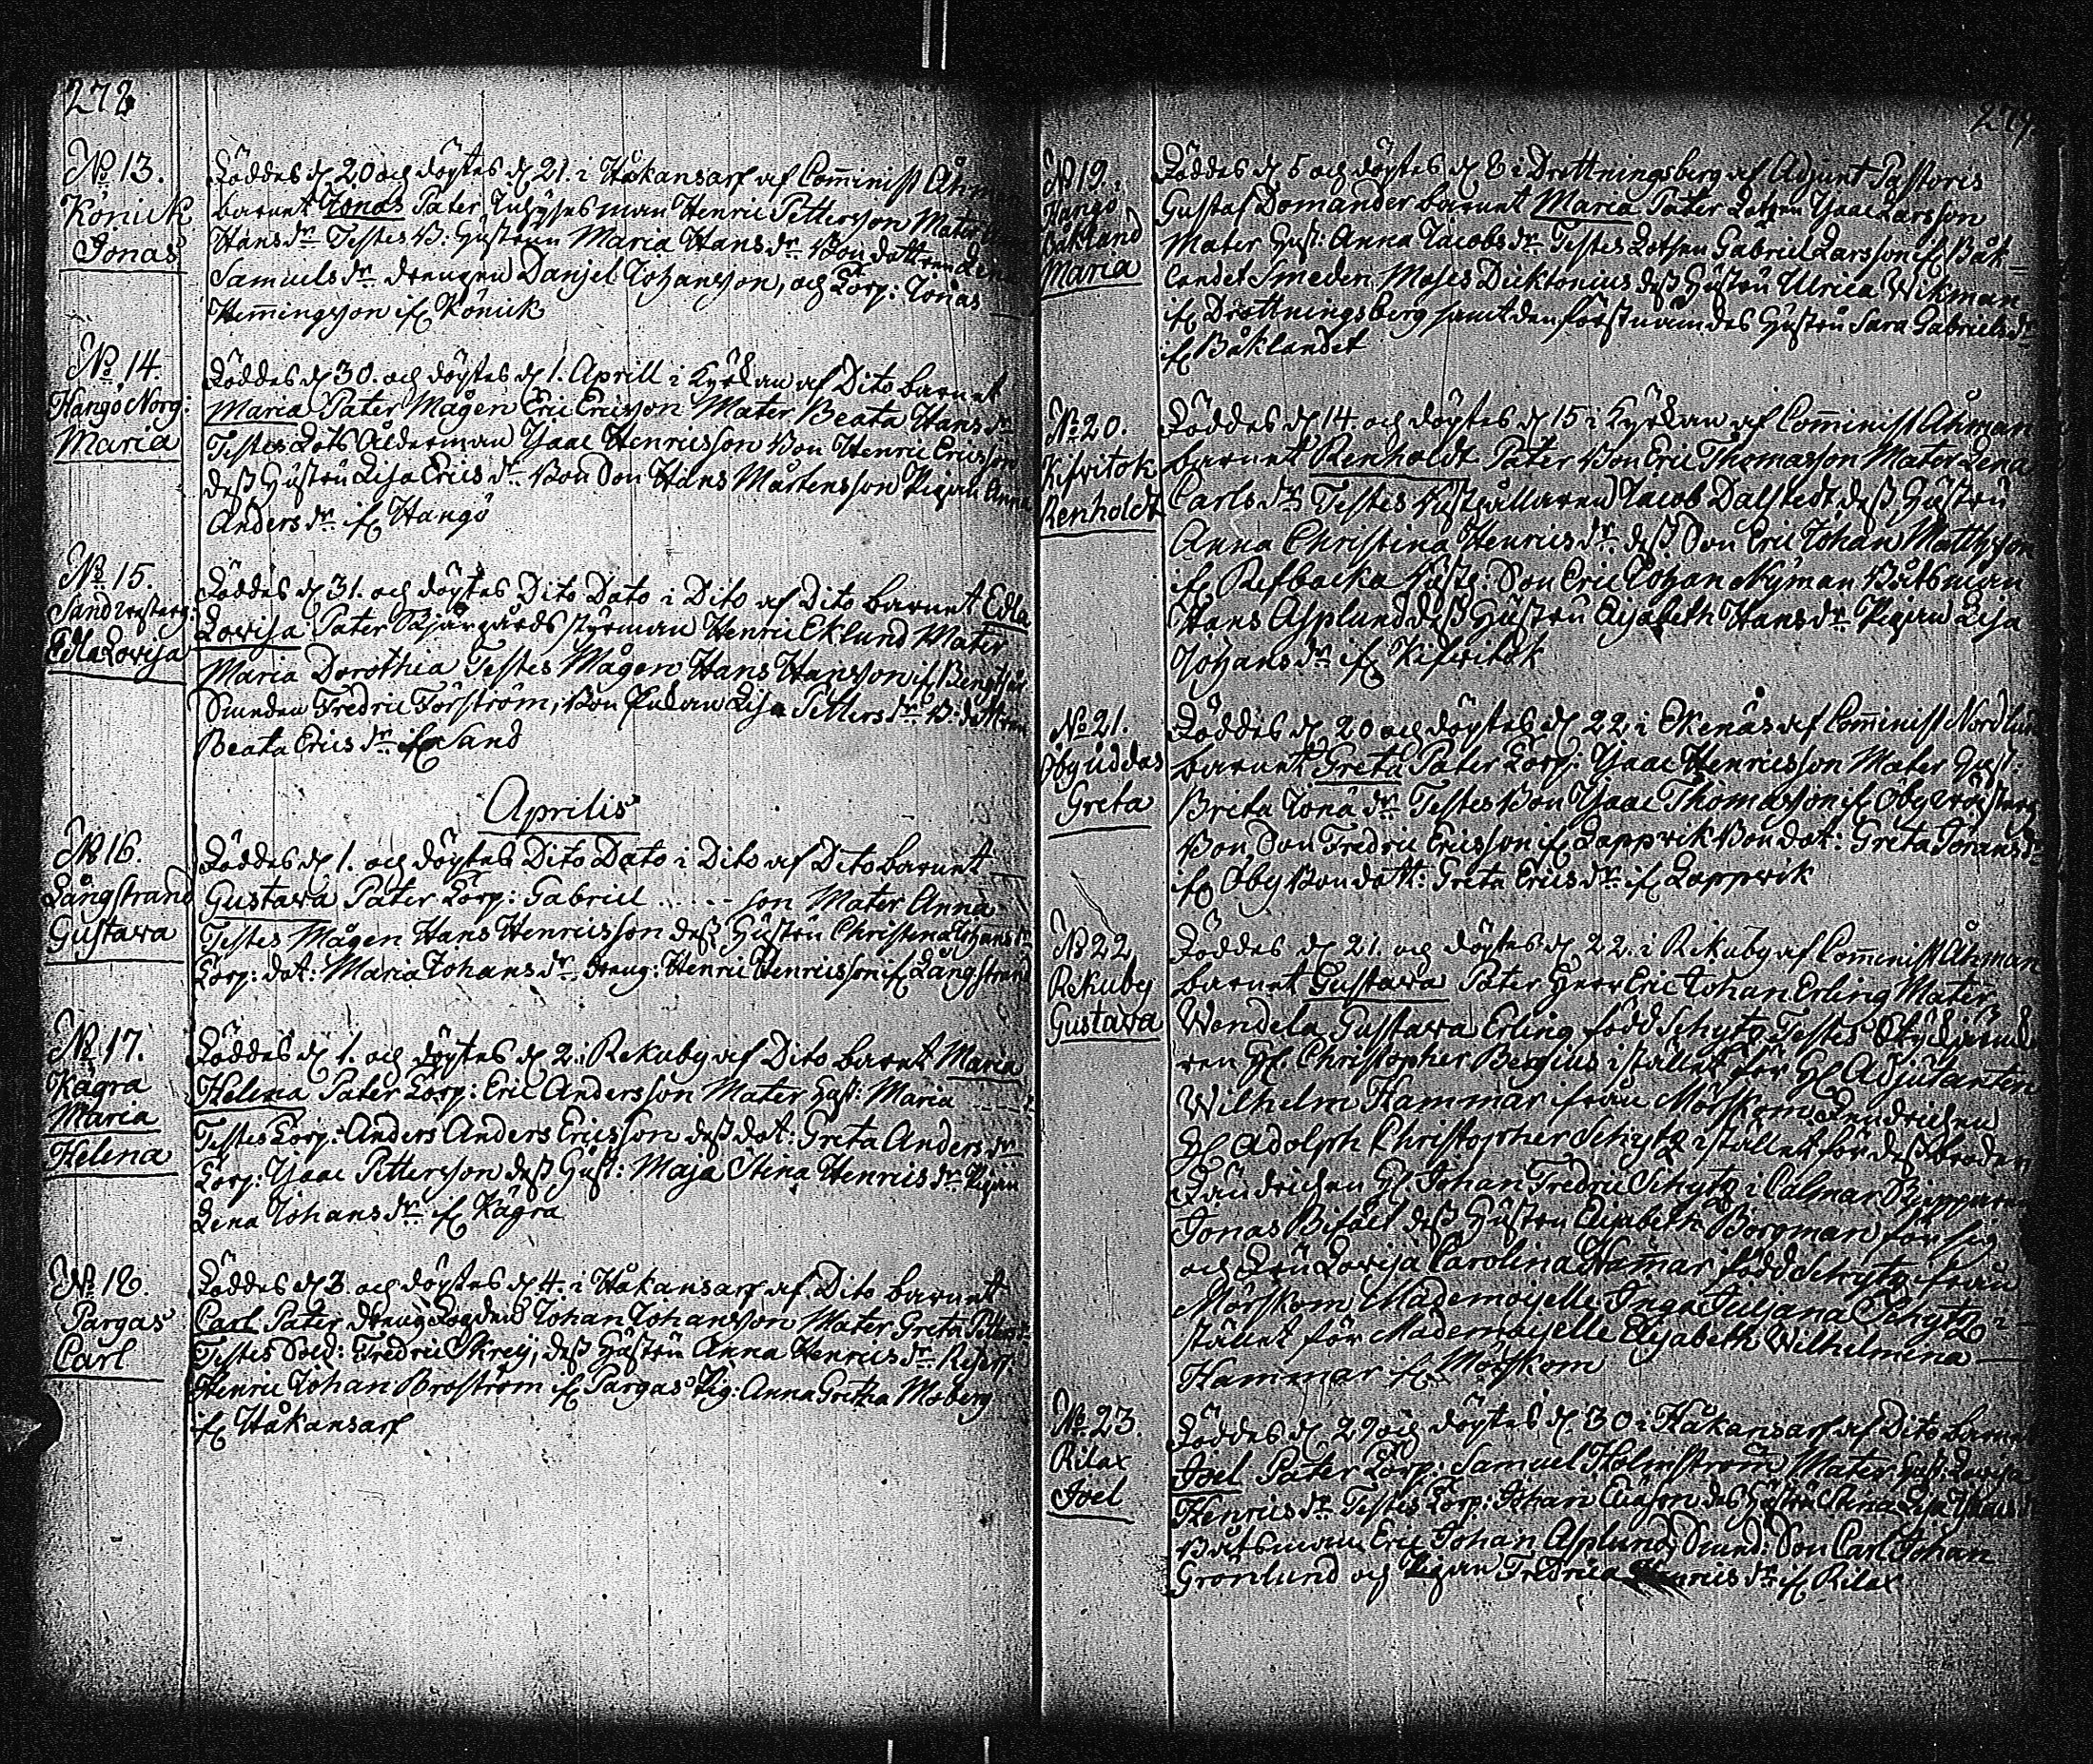 278
No 13.
Könick
Jonas
Föddes d 20 och döptes d 21. i Håkansarf af Comminist Åhman
barnet Jonas Pater Inhysesman Henric Pettersson Mater
Hans dr. Testes B: Hustrun Maria Hans dr. Bondottren Lena
Samuels dr. drengen Danjel Johansson, och Torp: Jonas
Hemmingsson if. Könick
No 14.
Hangö Norg:
Maria
Föddes d 30. och döptes d 1. Aprill i Kyrkan af Dito barnet
Maria Pater Mågen Eric Ericsson Mater Beata Hans dr
Testes Lots Ålderman Isaac Henricsson Bon Henric Ericsson
dess Hustru Lisa Erics dr. Bon Son Hans Mårtensson Pigan Anna
Anders dr. if. Hangö
No 15.
Edla Lovisa
Föddes d 31. och döptes Dito Dato i Dito af Dito barnet Edla
Lovisa Pater Skjärgårds styrman Henric Eklund Mater
Maria Dorothia Testes Mågen Hans Hansson if.
Smeden Fredric Forström, Bon Enkan Lisa Petters dr. B: dottren
Beata Erics dr. if. Sand
Aprilis
No 16.
Långstrand
Gustava
Föddes d 1. och döptes Dito Dato i Dito af Dito barnet
Gustava Pater Torp: Gabriel ..... son Mater Anna
Testes Mågen Hans Henricsson dess Hustru Christina Johans dr
Torp: dot: Maria Johans dr. dreng: Henric Henricsson if. Långstrand
No 17.
Kägra
Maria
Helena
Föddes d 1. och döptes d 2. i Rekuby af Dito barnet Maria
Helena Pater Torp: Eric Andersson Mater Hust: Maria .....
Testes Torp: Anders Anders Ericsson dess dot: Greta Anders dr
Torp: Isaac Pettersson dess Hust: Maja Stina Henrics dr. Pigan
Lena Johans dr. if. Kägra
No 18.
Pargas
Carl
Föddes d 3 och döptes d 4. i Håkansarf af Dito barnet
Carl Pater dreng Johan Johansson Mater Greta Petters dr
Testes Sold: Fredric Skrej, dess Hustru Anna Henrics dr.
Henric Johan Broström if. Pargas Pig: Anna Gretha Moberg
if. Håkansarf
279.
No 19.
Hangö
Båkland
Maria
Föddes d 5 och döptes d 8 i Drottningsberg af Adjunt Pastoris
Gustaf Domander barnet Maria Pater Lotsen Isaac Larsson
Mater Hust: Anna Jacobs dr. Testes Lotsen Gabriel Larsson if. Båk-
landet Smeden Moses Dicktonius dess Hustru Ulrica Wikman
if. Drottningsberg samt den förstnämdes Hustru Sara Gabriels dr
if. Båklandet
No 20.
Kifvitok
Renholdt
Föddes d 14. och döptes d 15 i Kyrkan af Comminist Åhman
barnet Renholdt Pater Bon Eric Thomasson Mater Lena
Carls dr. Testes Rusthållaren Jacob Dalstedt dess Hustru
Anna Christina Henrics dr. dess Son Eric Johan Mattsson
if. Refbacka Rusth: Son Eric Johan Nyman Båtsman
Hans Asplund dess Hustru Elisabeth Hans dr. Pigan Lisa
Johans dr. if. Kifvitok
No 21.
Öby uddas
Greta
Föddes d 20 och döptes d 22. i Ekenäs af Comminist Nordlun
barnet Greta Pater Torp: Isaac Henricsson Mater Hust:
Brita Jona dr. Testes Bon Isaac Thomasson if. Öby
Bon Son Fredric Ericsson if. Lappvik Bondot: Greta Jorans dr
if. Öby Bondott: Greta Erics dr. if. Lappvik
No 22
Rekuby
Gustava
Föddes d 21. och döptes d 22. i Rekuby af Comminist Åhman
barnet Gustava Pater Herr Eric Johan Erling Mater
Wendela Gustava Erling född Schytz Testes
ren H. Christopher Bergius i stället för H. Adjutanten
Wilhelm Hammar ifrån Mörskom Fendrichen
H. Adolph Christopher Schytz i stället för dess broder
Fändrichen H. Johan Fredric Schytz i Calmar Skepparen
Jonas Bifält dess Hustru Elisabeth Borgman för sig
och Fru Lovisa Carolina Hamar född Schytz ifrån
Mörskom Mademoiselle Inga Juljana Schytz i-
stället för Mademoiselle Elisabeth Wilhelmina
Hammar if. Mörskom
No 23.
Rilax
Joel
Föddes d 29 och döptes d. 30 i Håkansarf af Dito barnet
Joel Pater Torp: Samuel Holmström Mater Hust: Lovisa
Henrics dr. Testes Torp: Johan Eliasson des Hustru Stina Lisa
Båtsman Eric Johan Asplund, Smed: Son Carl Johan
Grönlund och Pigan Fredrica Henrics dr. if. Rilax